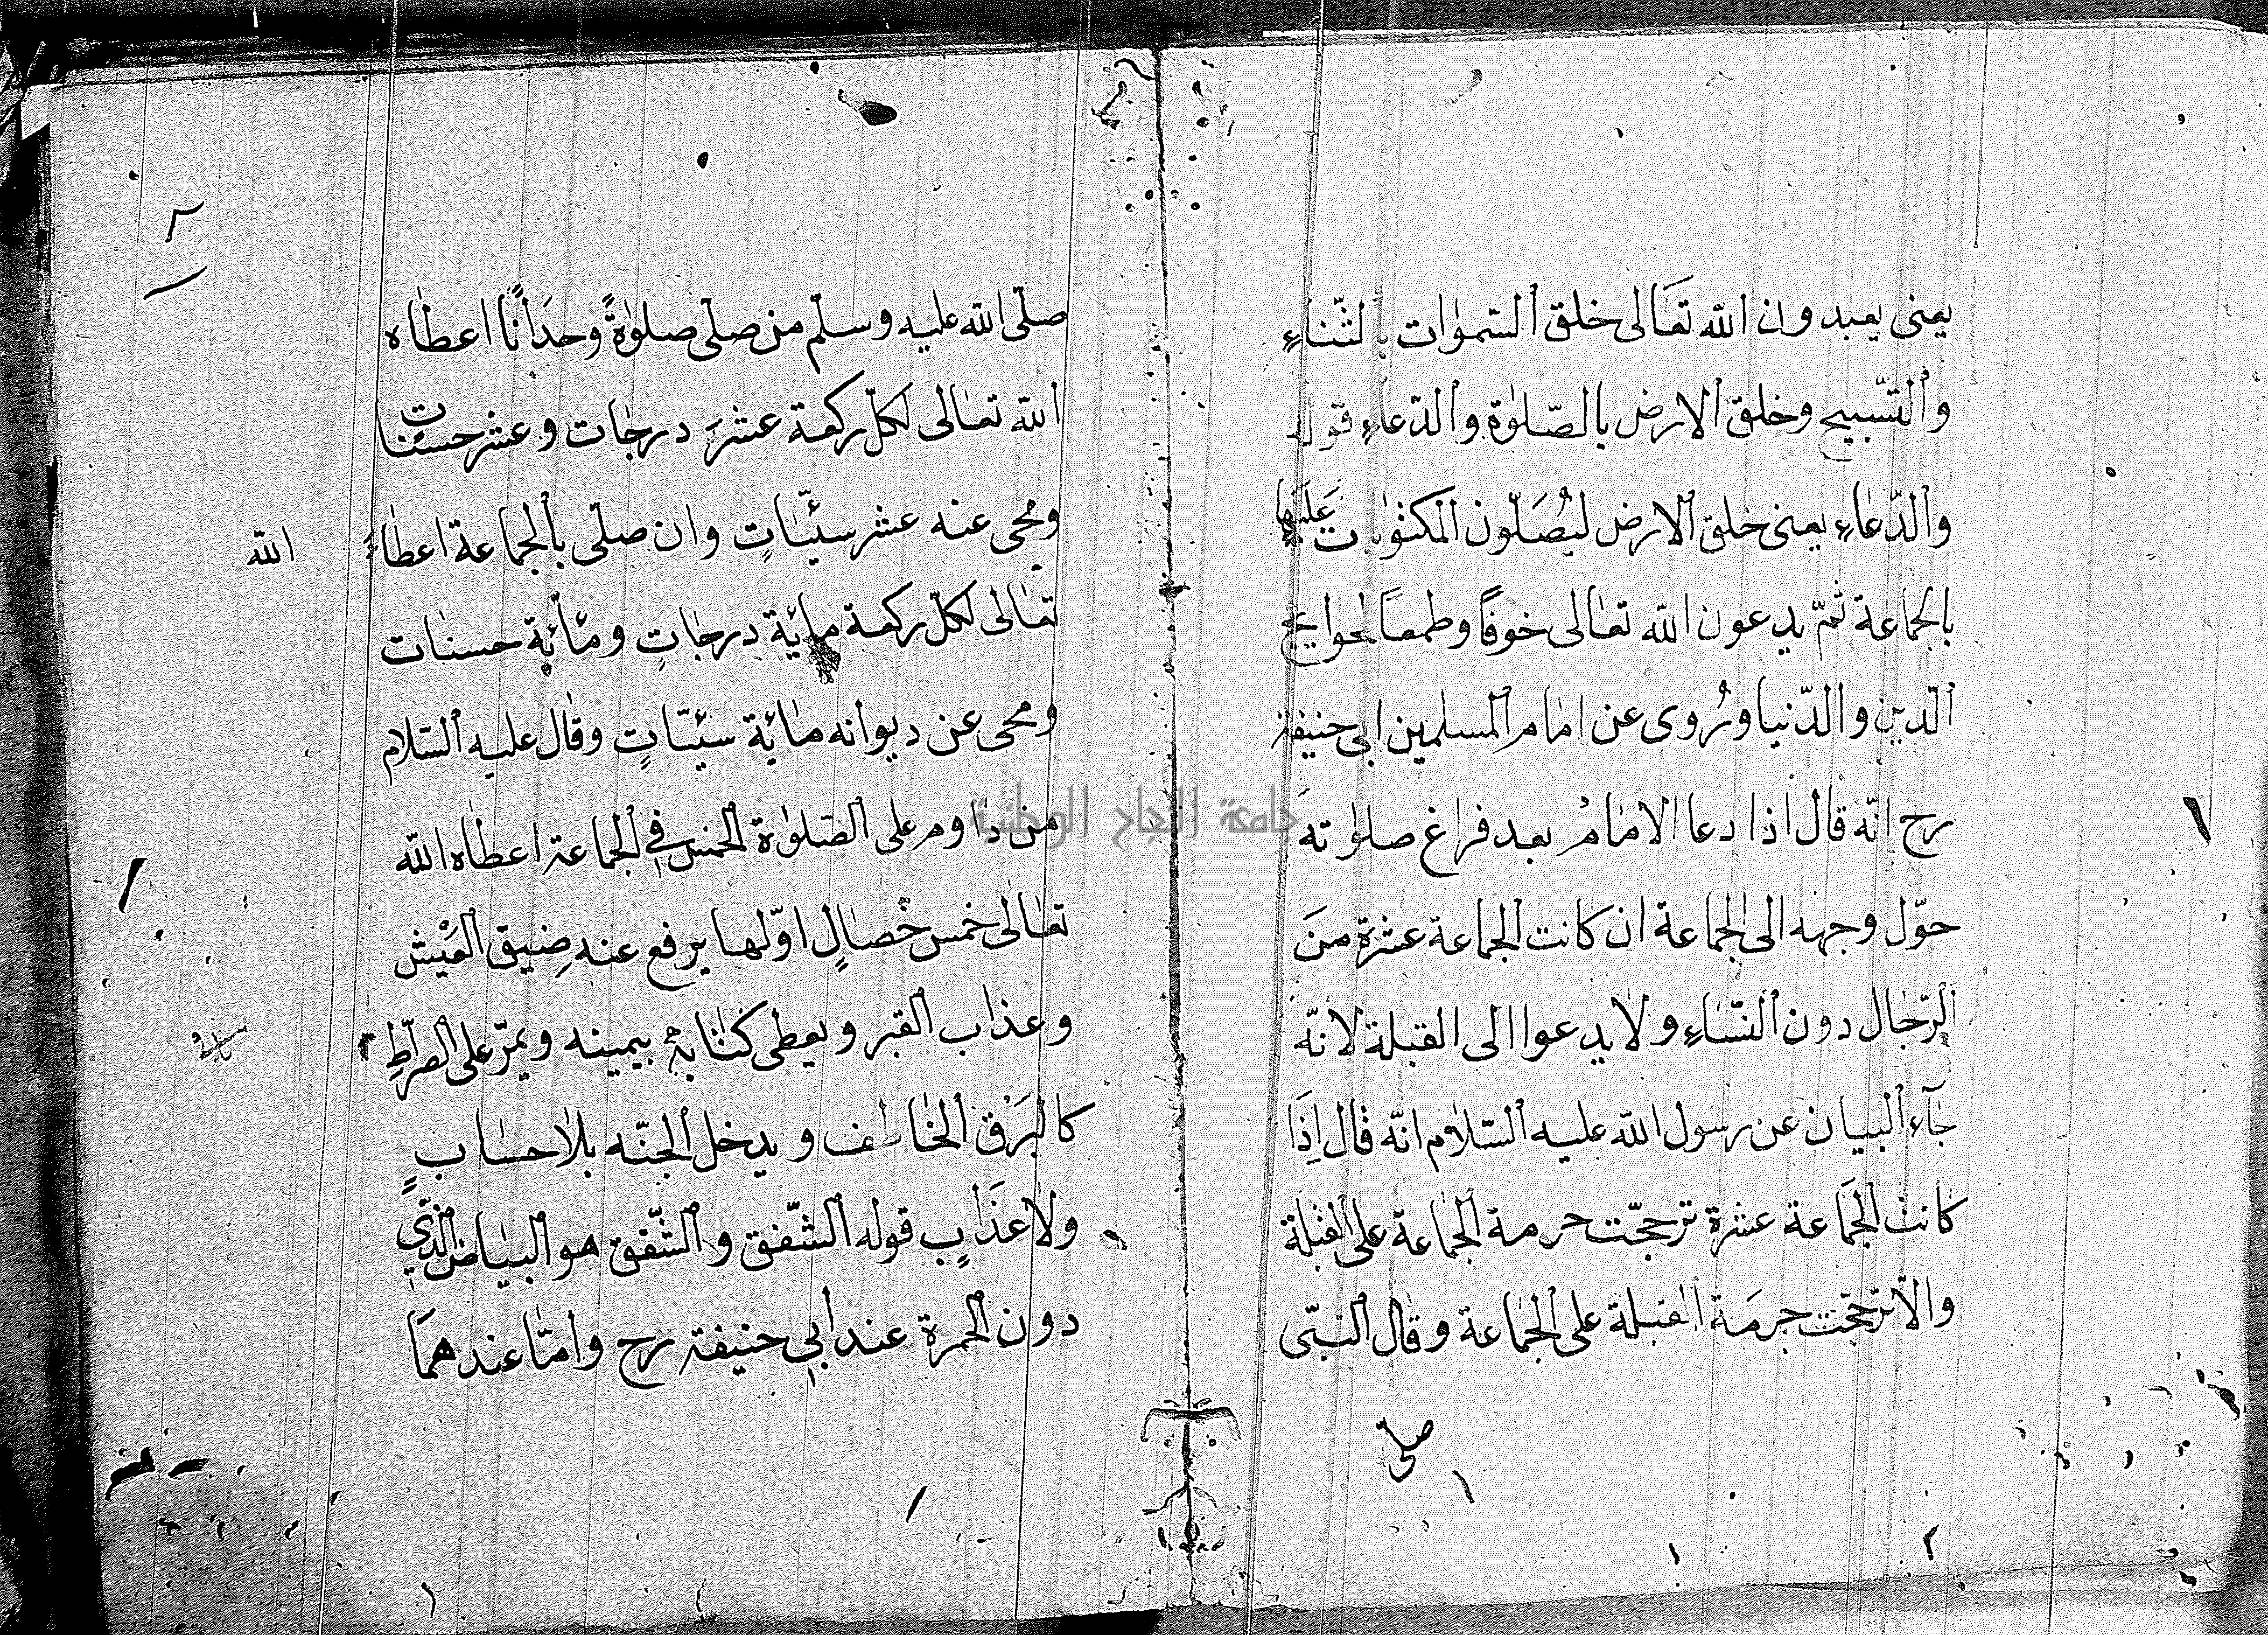 يعنى يعبدون الله تعالى خلق السّمٰوات بالثّناءِ
والتّسبيح وخلق الارض بالصّلٰوة والدّعاءِ قوله
والدّعاءِ يعنى خلق الارض ليُصَلّون المكتوبات عليها
بالجماعة ثمّ يدعون الله تعالى خوفًا وطمعًا لحوايج
الدّين والدّنيا ورُوى عن امام المسلمين ابى حنيفة
رح انّه قال اذا دعا الامامُ بعد فراغ صلوٰته
حوّل وجهه الى الجماعة ان كانت الجماعة عشرة منَ
الرّجال دون النّساءِ ولا يدعوا الى القبلة لانّه
جآء البيان عن رسول الله عليه السّلام انّه قال اِذَا
كانت الجَماعة عشرة ترجحّت حرمة الجماعة على القبلة
والّا ترجحّت حرمَة القبلة على الجماعة وقال النّبى
صلّى
٢
صلّى الله عليه وسلّم من صلّى صلوٰةً وحدَانًا اعطاه
الله تعالى لكلّ ركعة عشرَ درجات وعشر حسنات
ومحى عنه عشر سيّئاتٍ وان صلّى بالجماعة اعطاهُ الله
تعالى لكلّ ركعة مائة درجاتٍ ومائة حسنات
ومحى عن ديوانه مائة سيّئاتٍ وقال عليه السّلام
من داوم على الصّلوٰة الخمس في الجماعة اعطاه الله
تعالى خمس خصالٍ اوّلها يرفع عنه ضِيق العَيْش
وعذاب القبر ويعطى كتابه بيمينه ويمرّ على الصّراطِ
كالبَرْق الخاطف ويدخل الجنّه بلا حسابٍ
ولا عذابٍ قوله الشّفق والشّفق هو البياض الّذي
دون الحمرة عند أبي حنيفة رح وامّا عندهمَا
جامعة النجاح الوطنية